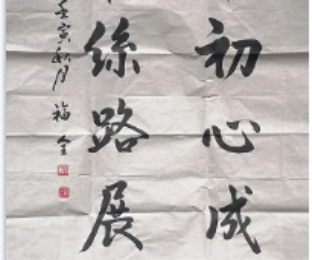 初心成
絲路展
壬寅秋月 福全